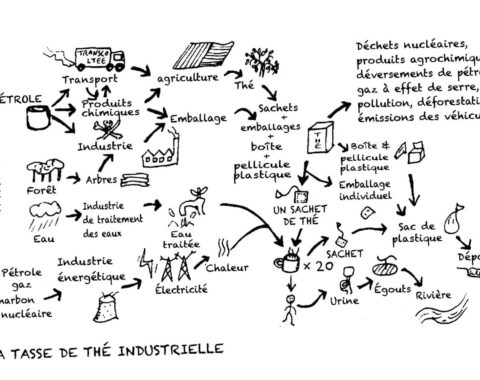 TRANSCO
LTÉE
Transport
ÉTROLE
Produits
chimiques
Industrie
agriculture
Thé
Emballage
Sachets
+
emballages
+
boîte
+
pellicule
plastique
THÉ
Déchets nucléaires,
produits agrochimiqu
déversements de pétro
gaz à effet de serre,
pollution, déforestati
émissions des véhicu
Boîte &
pellicule
plastique
Emballage
individuel
Forêt
Arbres
Eau
Industrie
de traitement
des eaux
Eau
traitée
UN SACHET
DE THÉ
× 20
SACHET
Sac de
plastique
Dépo
Pétrole
gaz
harbon
nucléaire
Industrie
énergétique
Électricité
Chaleur
Urine
Égouts
Rivière
A TASSE DE THÉ INDUSTRIELLE